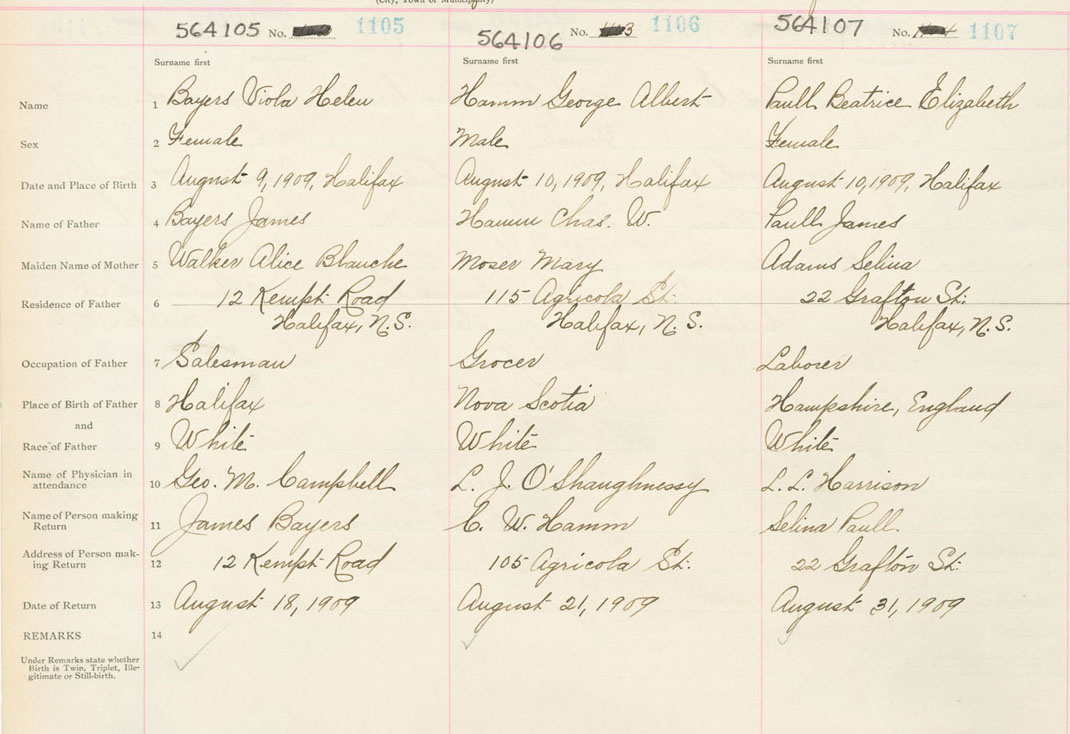 (City, Town or Municipality)
564105 No. 1105 564106 No. 3 1106 564107 No. 1107
Surname first Surname first Surname first
Name 1 Bayers Viola Helen Hamm George Albert Paull Beatrice Elizabeth
Sex 2 Female Male Female
Date and Place of Birth 3 August 9, 1909, Halifax August 10, 1909, Halifax August 10, 1909, Halifax
Name of Father 4 Bayers James Hamm Chas. W. Paull James
Maiden Name of Mother 5 Walker Alice Blanche Moser Mary Adams Selina
Residence of Father 6 12 Kempt Road 115 Agricola St. 22 Grafton St.
Halifax, N.S. Halifax, N.S. Halifax, N.S.
Occupation of Father 7 Salesman Grocer Laborer
Place of Birth of Father 8 Halifax Nova Scotia Hampshire, England
and
Race of Father 9 White White White
Name of Physician in
attendance 10 Geo. M. Campbell L. J. O'Shaughnessy L. L. Harrison
Name of Person making
Return 11 James Bayers C. W. Hamm Selina Paull
Address of Person mak-
ing Return 12 12 Kempt Road 105 Agricola St. 22 Grafton St.
Date of Return 13 August 18, 1909 August 21, 1909 August 31, 1909
REMARKS 14
Under Remarks state whether
Birth is Twin, Triplet, Ille-
gitimate or Still-birth.